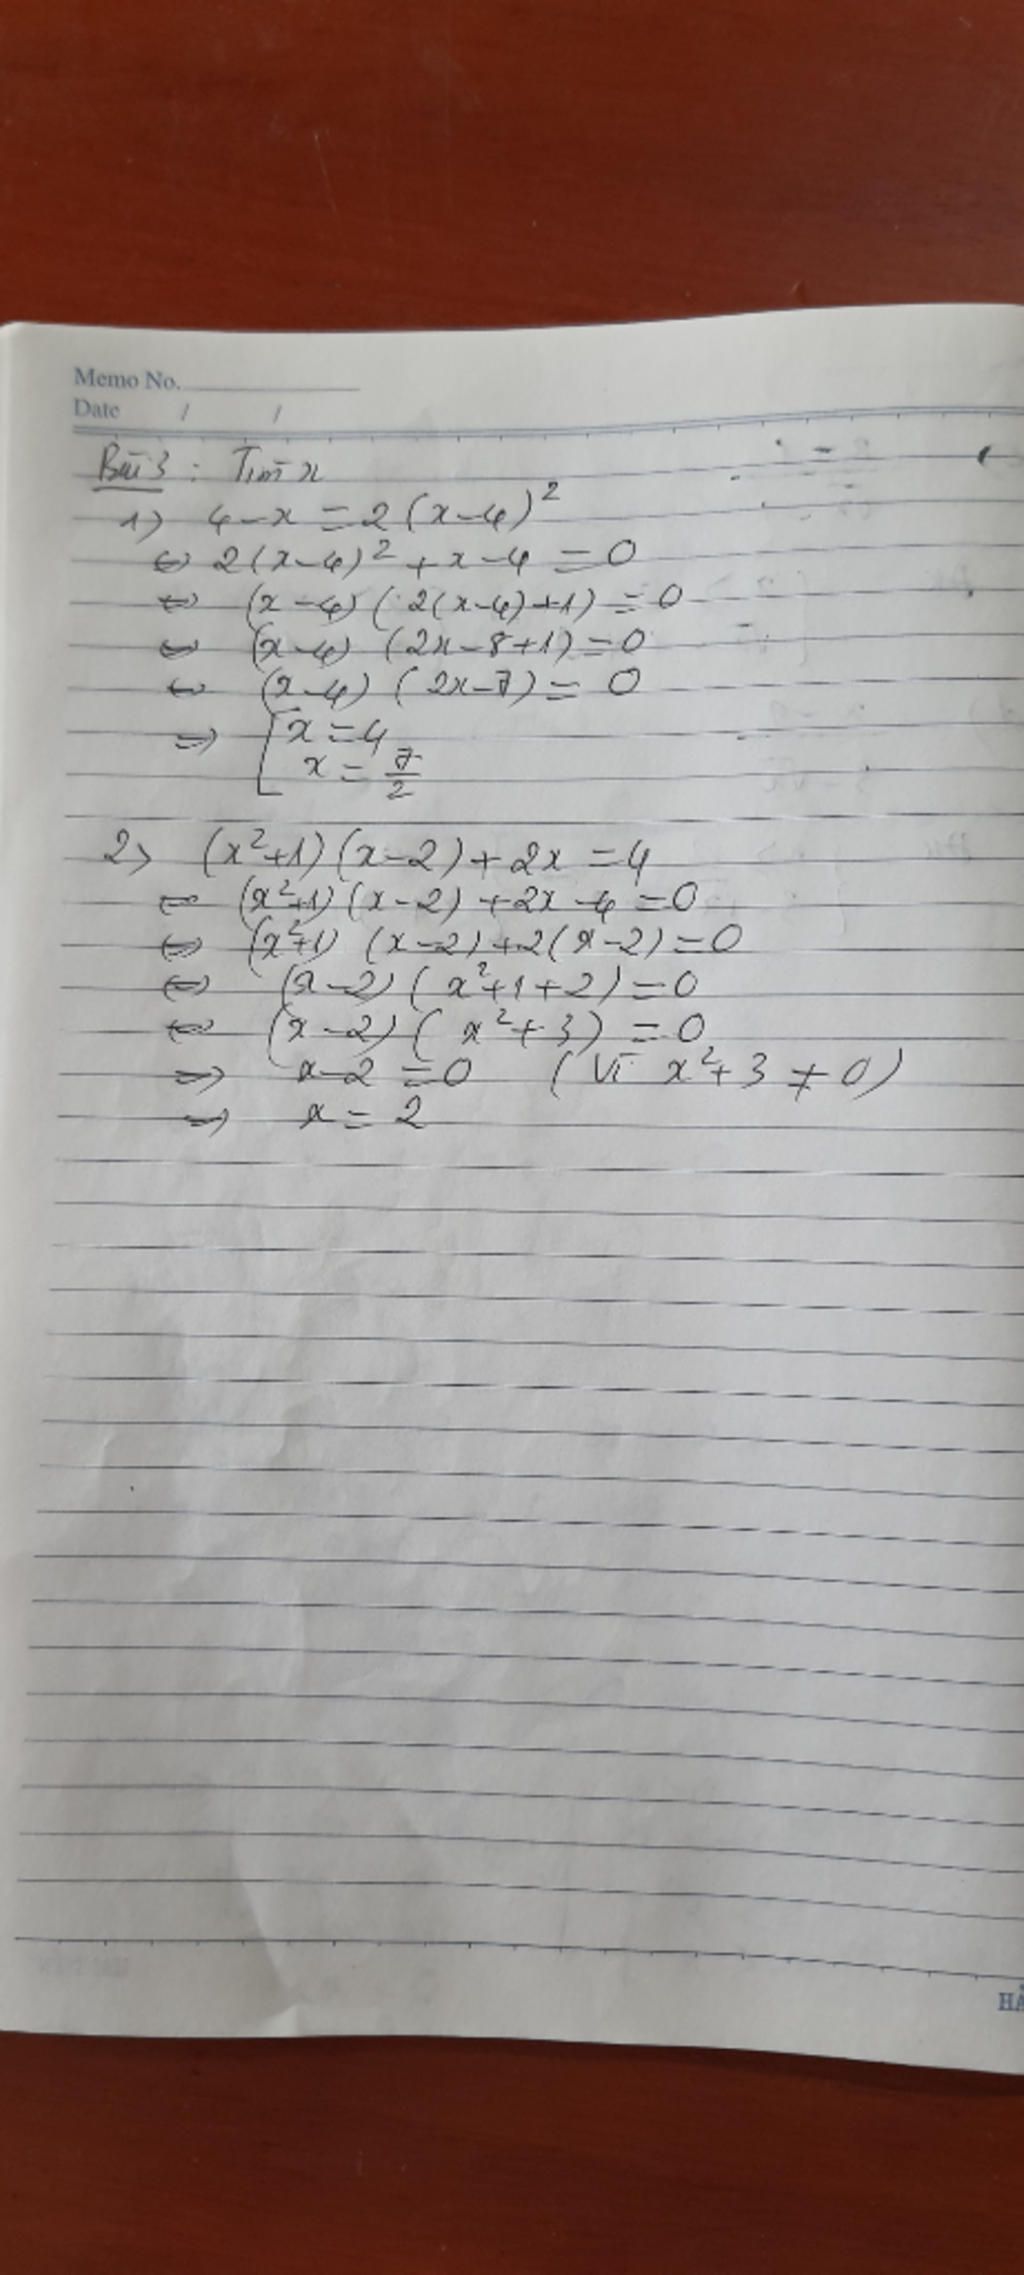 Memo No.
Date / /
Bài 3 : Tìm x
1) 4-x = 2(x-4)²
⇔ 2(x-4)² + x-4 = 0
⇔ (x-4) (2(x-4)+1) = 0
⇔ (x-4) (2x-8+1) = 0
⇔ (x-4) (2x-7) = 0
⇒ [ x = 4
x = 7/2
2) (x²+1)(x-2)+2x = 4
⇔ (x²+1)(x-2) +2x-4 = 0
⇔ (x²+1) (x-2)+2(x-2) = 0
⇔ (x-2) (x²+1+2) = 0
⇔ (x-2) (x²+3) = 0
⇒ x-2 = 0 (Vì x²+3 ≠ 0)
⇒ x = 2